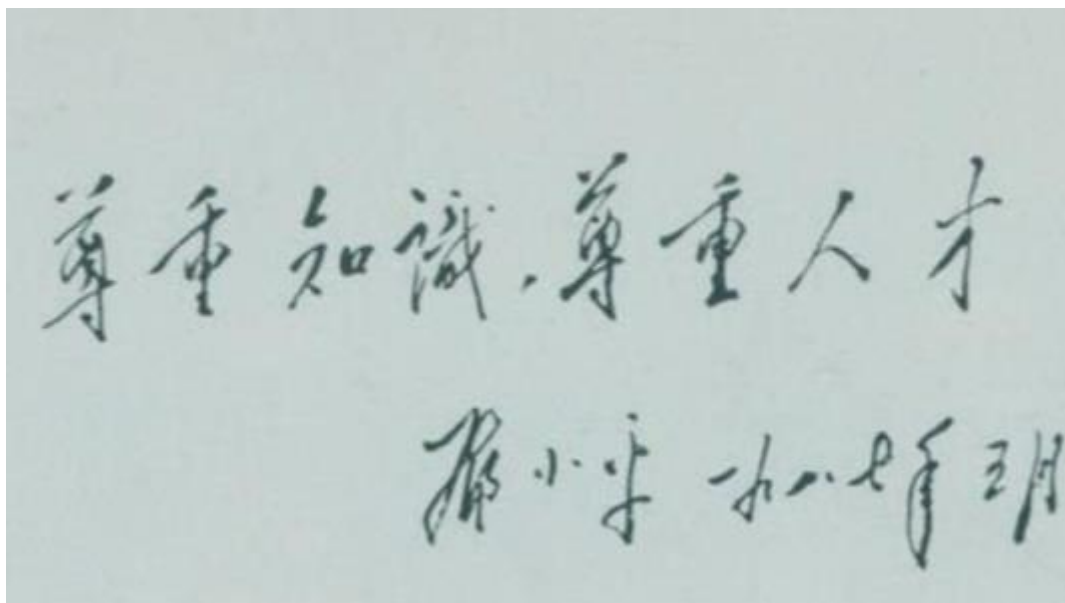 尊重知識.尊重人才
鄧小平 一九八七年三月